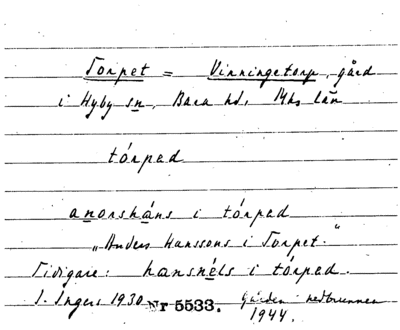 Torpet = Vinningetorp, gård
i Hyby sn, Bara hd, Mhs län
tórpad
anorsháns i tórpad
„Anders Hanssons i Torpet."
Tidigare: hansnéls i tórpad.
I. Ingers 1930 Nr 5533. Gården nedbrunnen
1944.